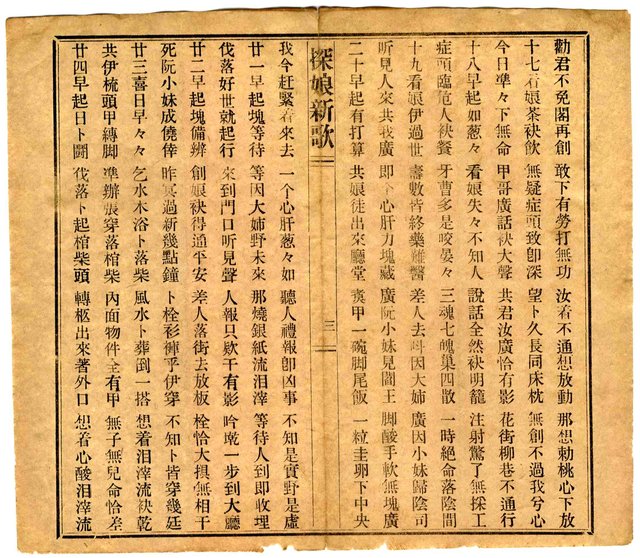 勸君不免閣再創 敢下有勞打無功 汝看不通想放動 那想勅桃心下放
十七看娘茶袂飲 無疑症頭致卽深 望卜久長同床枕 無創不過我兮心
今日凖々下無命 甲哥廣話袂大聲 共君汝廣恰有影 花街柳巷不通行
十八早起如葱々 看娘失々不知人 說話全然袂明籠 注射驚了無採工
症頭臨范人袂餐 牙曹多是咬晏々 三魂七魄巢四散 一時絶命落陰間
十九看娘伊過世 壽數皆終藥難醫 差人去呌因大姉 廣因小妹歸陰司
听見人來共我廣 卽个心肝力塊藏 廣阮小妹見閻王 脚酸手軟無塊廣
二十早起有打算 共娘徒出來廳堂 煑甲一碗脚尾飯 一粒圭卵下中央
探娘新歌 三
我今赶緊着來去 一个心肝葱々如 聽人禮報卽凶事 不知是實野是虛
廿一早起塊等待 等因大姉野未來 那燒銀紙流泪滓 等待人到卽收埋
伐落好世就起行 來到門口听見聲 人報只欵干有影 吟乾一步到大廳
廿二早起塊備辨 創娘袂得通平安 差人落街去放板 栓恰大損無相干
死阮小妹成僥倖 昨冥過新幾點鐘 卜栓衫褲乎伊穿 不知卜皆穿幾廷
廿三喜日早々々 乞水木浴卜落柴 風水卜葬倒一搭 想着泪滓流袂乾
共伊梳頭甲縛脚 凖辦張穿落棺柴 內面物件全有甲 無子無兒命恰差
廿四早起日卜鬪 伐落卜起棺柴頭 轉柩出來著外口 想着心酸泪滓流